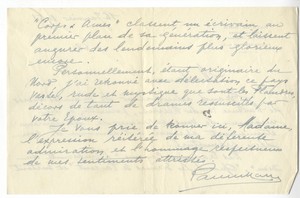 "Corps et Ames" classent un écrivain au
premier plan de sa génération, et laissent
augurer des lendemains plus glorieux
encore.
Personnellement, étant originaire du
Nord, j'ai retrouvé avec délectation ce pays
rude et mystique que sont les Flandres
décors de tant de drames ressuscités par
votre Epoux.
Je vous prie de trouver ici, Madame,
l'expression réitérée de ma déférente
admiration et l'hommage respectueux
de mes sentiments attristés.